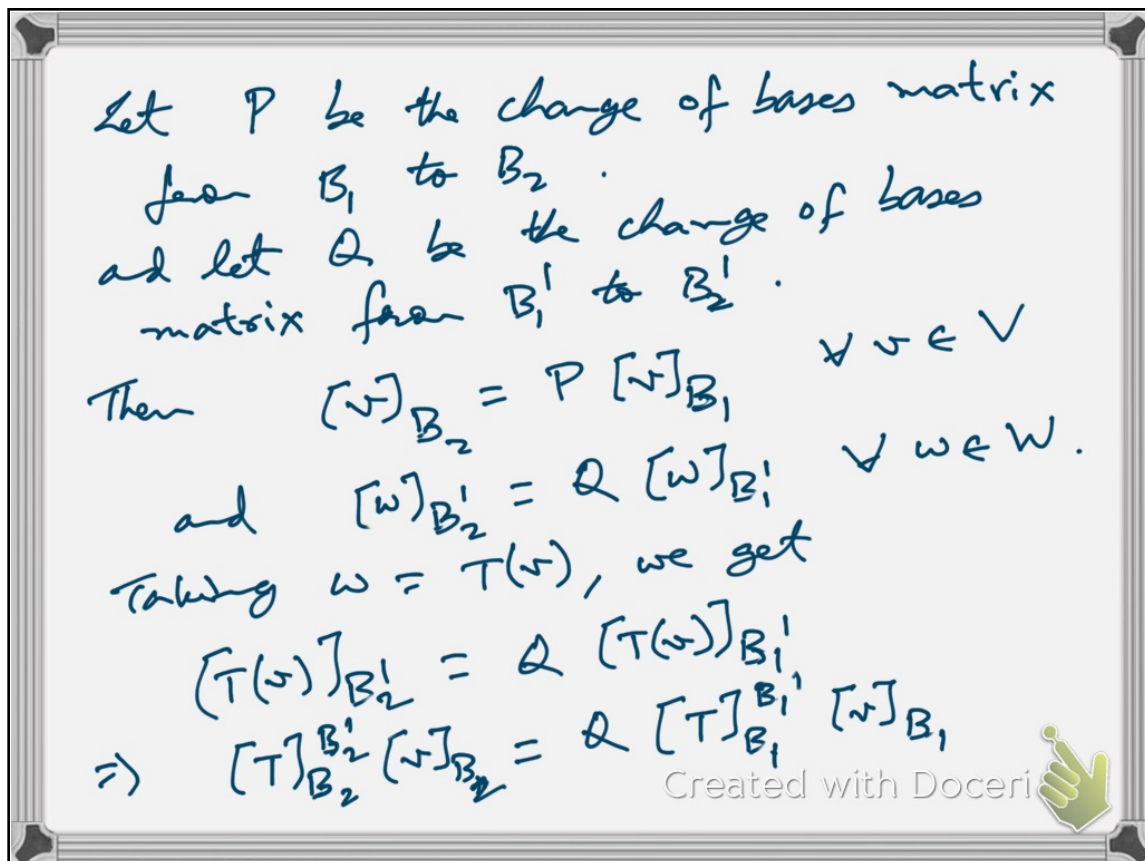 Let P be the change of bases matrix
from B₁ to B₂ .
and let Q be the change of bases
matrix from B₁' to B₂' .
Then [v]_B₂ = P [v]_B₁ ∀ v ∈ V
and [w]_B₂' = Q [w]_B₁' ∀ w ∈ W.
Taking w = T(v), we get
[T(v)]_B₂' = Q [T(v)]_B₁'
⇒ [T]_B₂^B₂' [v]_B₂ = Q [T]_B₁^B₁' [v]_B₁
Created with Doceri